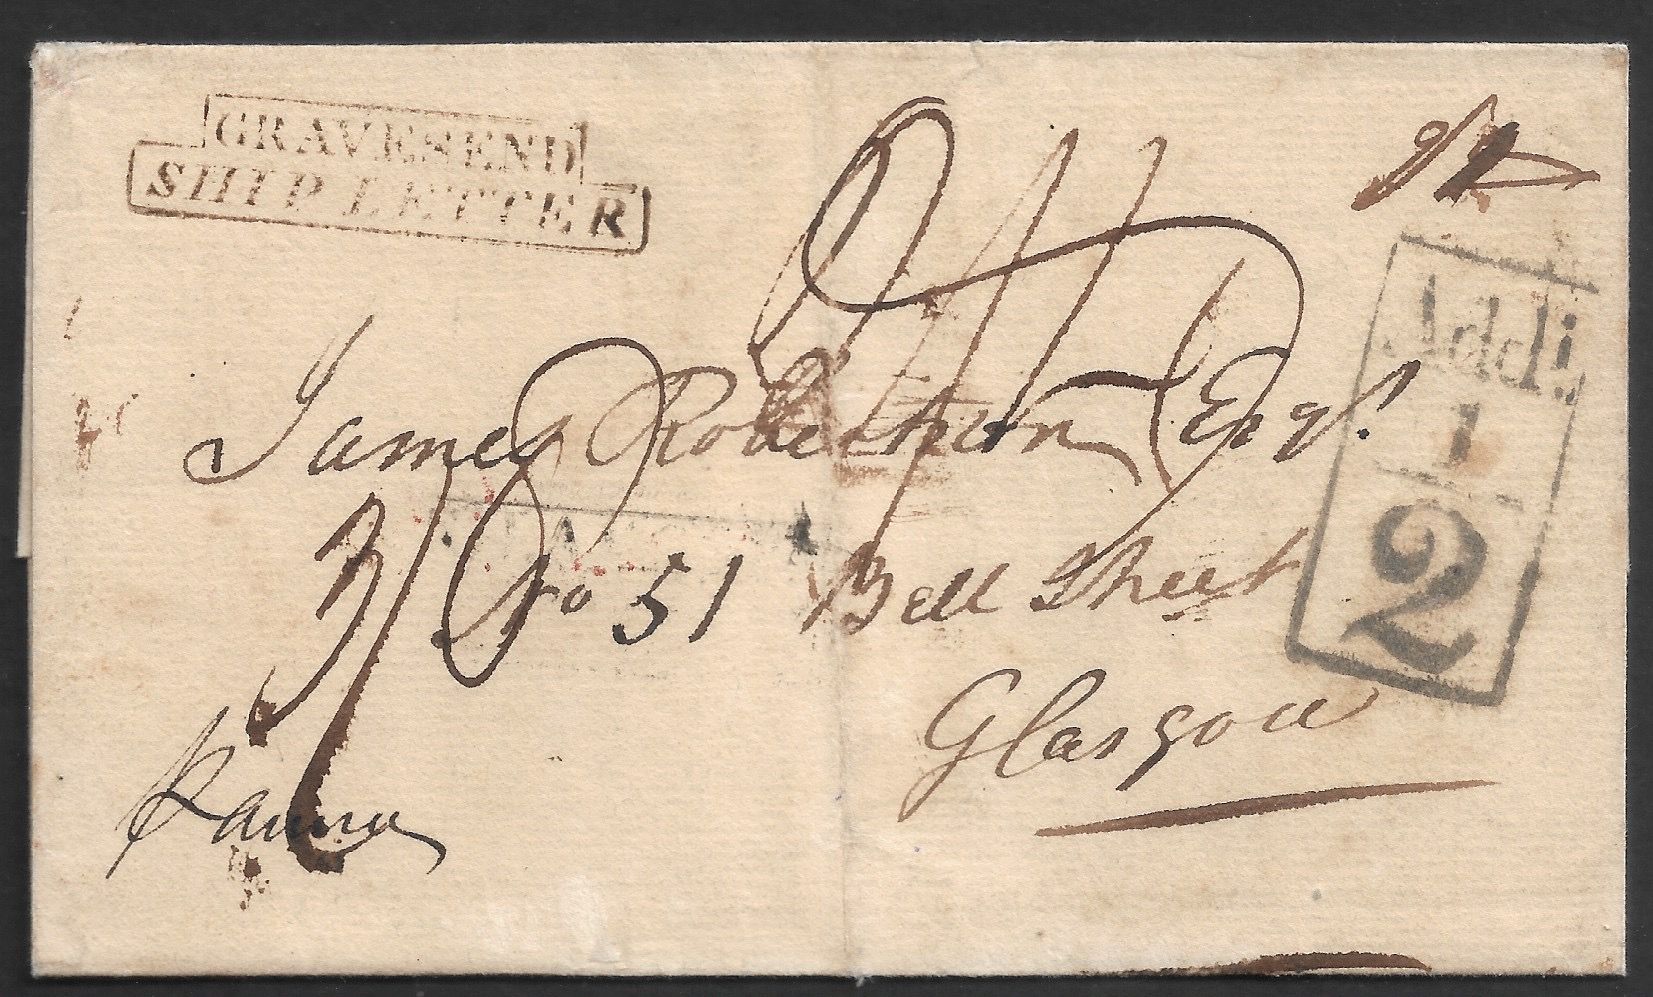 GRAVESEND
SHIP LETTER
Addl.
1
2
James Robertson Esqr.
No 51 Bell Street
Glasgow